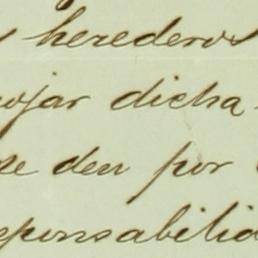 s herederos
ojar dicha
se den por
esponsabilid